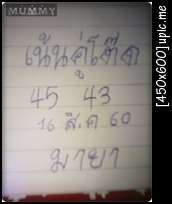 MUMMY
เน้นคู่โต๊ด
45 43
16 ส.ค 60
มายา
[450x600] upic.me